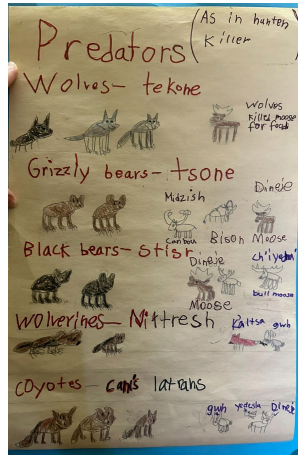 Predators (As in hunter
Killer
Wolves- tekone
Wolves
killed moose
for food
Grizzly bears- tsone
Midzish
Dineje
Caribou
Bison
Moose
Black bears- stish
Dineje
Moose
bull moose
Wolverines- Nittresh
Kaltsa
gwh
Coyotes - canis latrans
gwh